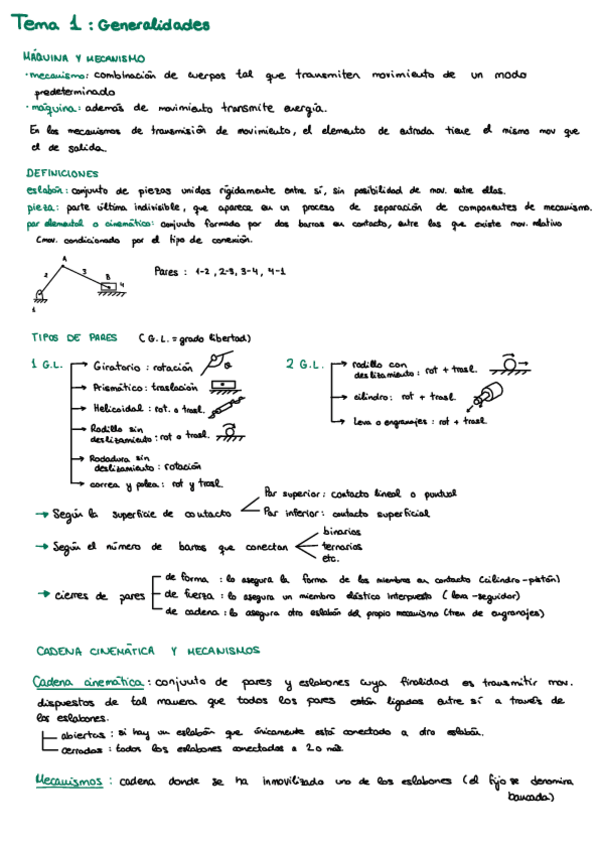 Tema 1 : Generalidades
MÁQUINA Y MECANISMO
· mecanismo: combinación de cuerpos tal que transmiten movimiento de un modo
predeterminado
· máquina: además de movimiento transmite energía.
En los mecanismos de transmisión de movimiento, el elemento de entrada tiene el mismo mov que
el de salida.
DEFINICIONES
eslabón: conjunto de piezas unidas rígidamente entre sí, sin posibilidad de mov. entre ellas.
pieza: parte última indivisible, que aparece en un proceso de separación de componentes de mecanismo.
par elemental o cinemático: conjunto formado por dos barras en contacto, entre las que existe mov. relativo
(mov. condicionado por el tipo de conexión.
A
2 3 B 4
1
Pares : 1-2 , 2-3, 3-4, 4-1
TIPOS DE PARES (G.L. = grado libertad)
1 G.L.
Giratorio : rotación
Prismático : traslación
Helicoidal : rot. o trasl.
Rodillo sin
deslizamiento : rot o trasl.
Rodadura sin
deslizamiento : rotación
correa y polea : rot y trasl.
2 G.L.
rodillo con
deslizamiento : rot + trasl.
cilindro : rot + trasl.
Leva o engranajes : rot + trasl.
→ Según la superficie de contacto
Par superior : contacto lineal o puntual
Par inferior : contacto superficial
→ Según el número de barras que conectan
binarios
ternarios
etc.
→ cierres de pares
de forma : lo asegura la forma de los miembros en contacto (cilindro-pistón)
de fuerza : lo asegura un miembro elástico interpuesto (leva-seguidor)
de cadena : lo asegura otro eslabón del propio mecanismo (tren de engranajes)
CADENA CINEMÁTICA Y MECANISMOS
Cadena cinemática : conjunto de pares y eslabones cuya finalidad es transmitir mov.
dispuestos de tal manera que todos los pares están ligados entre sí a través de
los eslabones.
abiertas : si hay un eslabón que únicamente está conectado a otro eslabón.
cerradas : todos los eslabones conectados a 2 o más.
Mecanismos : cadena donde se ha inmovilizado uno de los eslabones (el fijo se denomina
bancada)